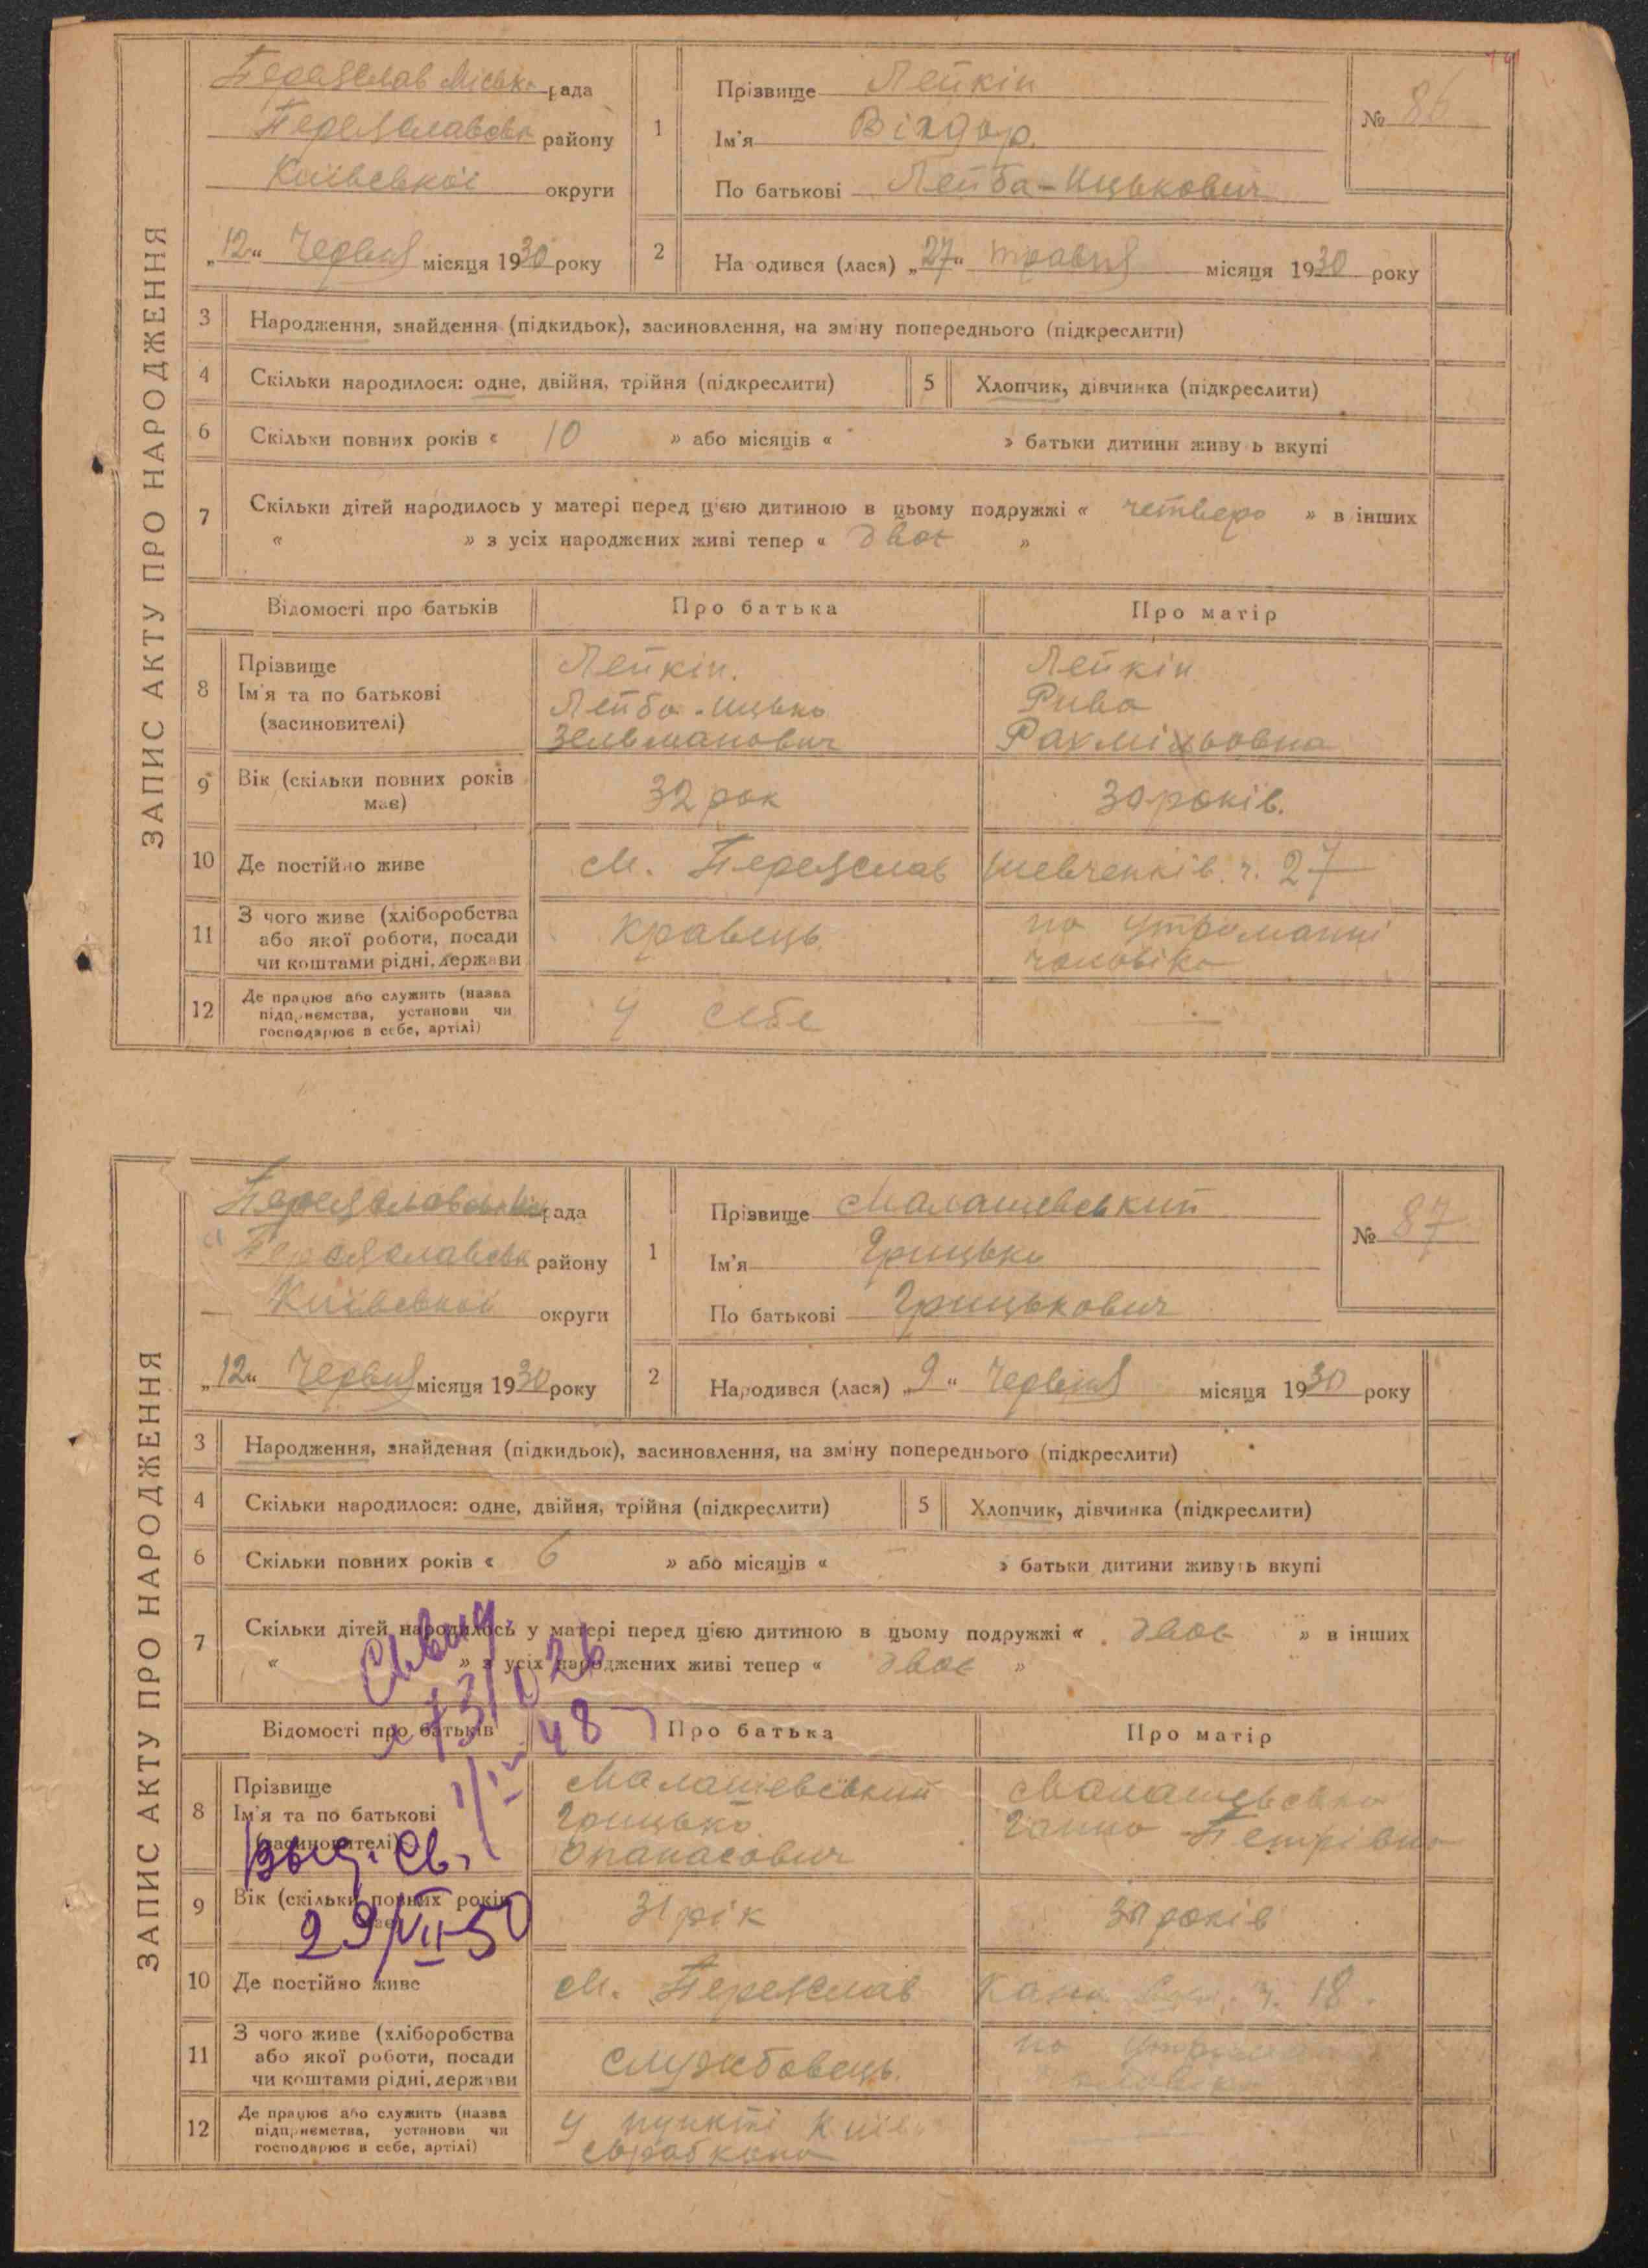 ЗАПИС АКТУ ПРО НАРОДЖЕННЯ
Переяслав Міськ рада
Переяславськ району
Київської округи
„12“ Червня місяця 1930 року
1 Прізвище Лейкін
Ім'я Віхдор.
По батькові Лейба-Ицькович
№ 86
2 На одився (лася) „27“ травня місяця 1930 року
3 Народження, знайдення (підкидьок), засиновлення, на зміну попереднього (підкреслити)
4 Скільки народилося: одне, двійня, трійня (підкреслити) 5 Хлопчик, дівчинка (підкреслити)
6 Скільки повних років « 10 » або місяців « » батьки дитини живу ь вкупі
7 Скільки дітей народилось у матері перед цією дитиною в цьому подружжі « четверо » в інших
« » з усіх народжених живі тепер « двоє »
Відомості про батьків Про батька Про матір
8 Прізвище Лейкін. Лейкін
Ім'я та по батькові Лейба-Ицько Рива
(засиновителі) Зельманович
9 Вік (скільки повних років має) 32 рок 30 років.
10 Де постійно живе м. Переяслав Шевченків. ч. 27
11 З чого живе (хліборобства кравець на утриманні
або якої роботи, посади чоловіка
чи коштами рідні, держави
12 Де працює або служить (назва у себе —
підприємства, установи чи
господарює в себе, артілі)
ЗАПИС АКТУ ПРО НАРОДЖЕННЯ
рада
Переяславськ району
Київської округи
„12“ Червня місяця 1930 року
1 Прізвище Малашевський
Ім'я Грицько
По батькові Грицькович
№ 87
2 Народився (лася) „9“ Червня місяця 1930 року
3 Народження, знайдення (підкидьок), засиновлення, на зміну попереднього (підкреслити)
4 Скільки народилося: одне, двійня, трійня (підкреслити) 5 Хлопчик, дівчинка (підкреслити)
6 Скільки повних років « 6 » або місяців « — » батьки дитини живуть вкупі
7 Скільки дітей народилось у матері перед цією дитиною в цьому подружжі « двоє » в інших
« » з усіх народжених живі тепер « двоє »
Відомості про батьків Про батька Про матір
8 Прізвище Малашевський Малашевська
Ім'я та по батькові Грицько Ганна Петрівна
(засиновителі) Опанасович
Выд. Св.
29/VII-50
9 Вік (скільки повних років має) 31 рік 30 років
10 Де постійно живе м. Переяслав ч. 18.
11 З чого живе (хліборобства службовець. на
або якої роботи, посади
чи коштами рідні, держави
12 Де працює або служить (назва у пункті Київ
підприємства, установи чи
господарює в себе, артілі)